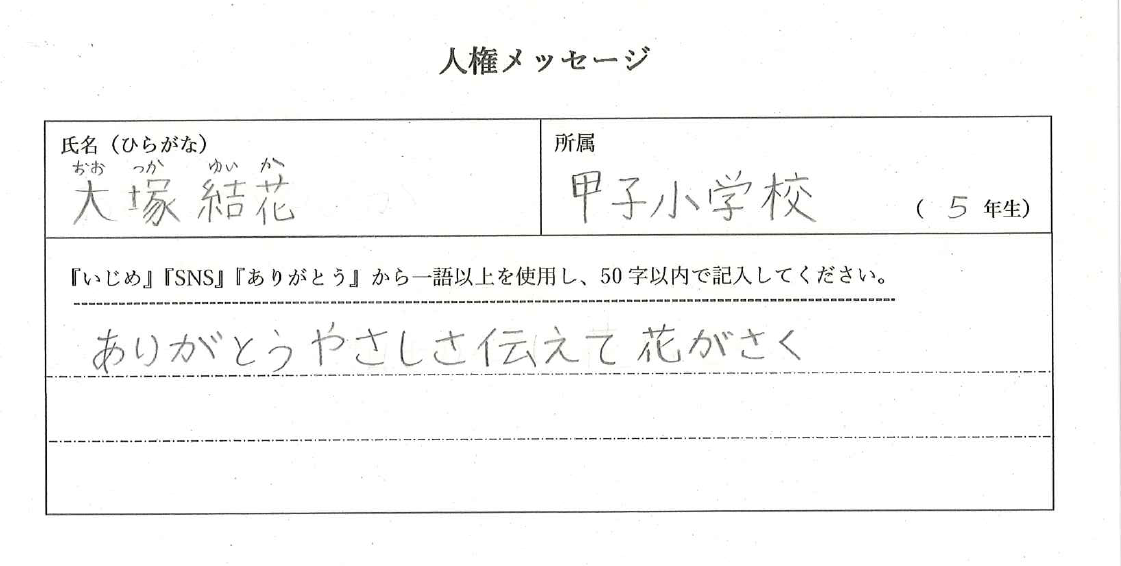 人権メッセージ
氏名（ひらがな）
おお つか ゆい か
大塚 結花
所属
甲子小学校 （ 5 年生）
『いじめ』『SNS』『ありがとう』から一語以上を使用し、50字以内で記入してください。
ありがとう やさしさ伝えて 花がさく